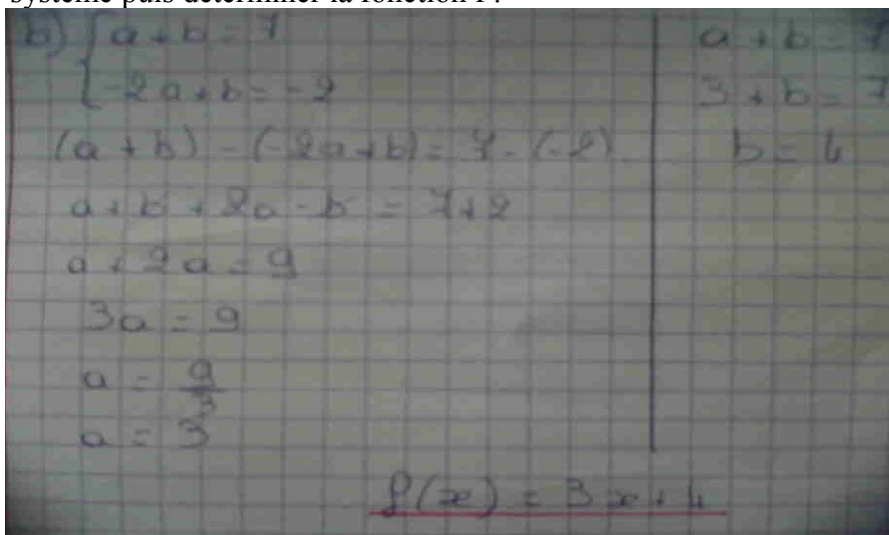 système puis déterminer la fonction f.
b) { a + b = 7
-2a + b = -2
(a + b) - (-2a + b) = 7 - (-2)
a + b + 2a - b = 7 + 2
a + 2a = 9
3a = 9
a = 9/3
a = 3
a + b = 7
3 + b = 7
b = 4
f(x) = 3x + 4